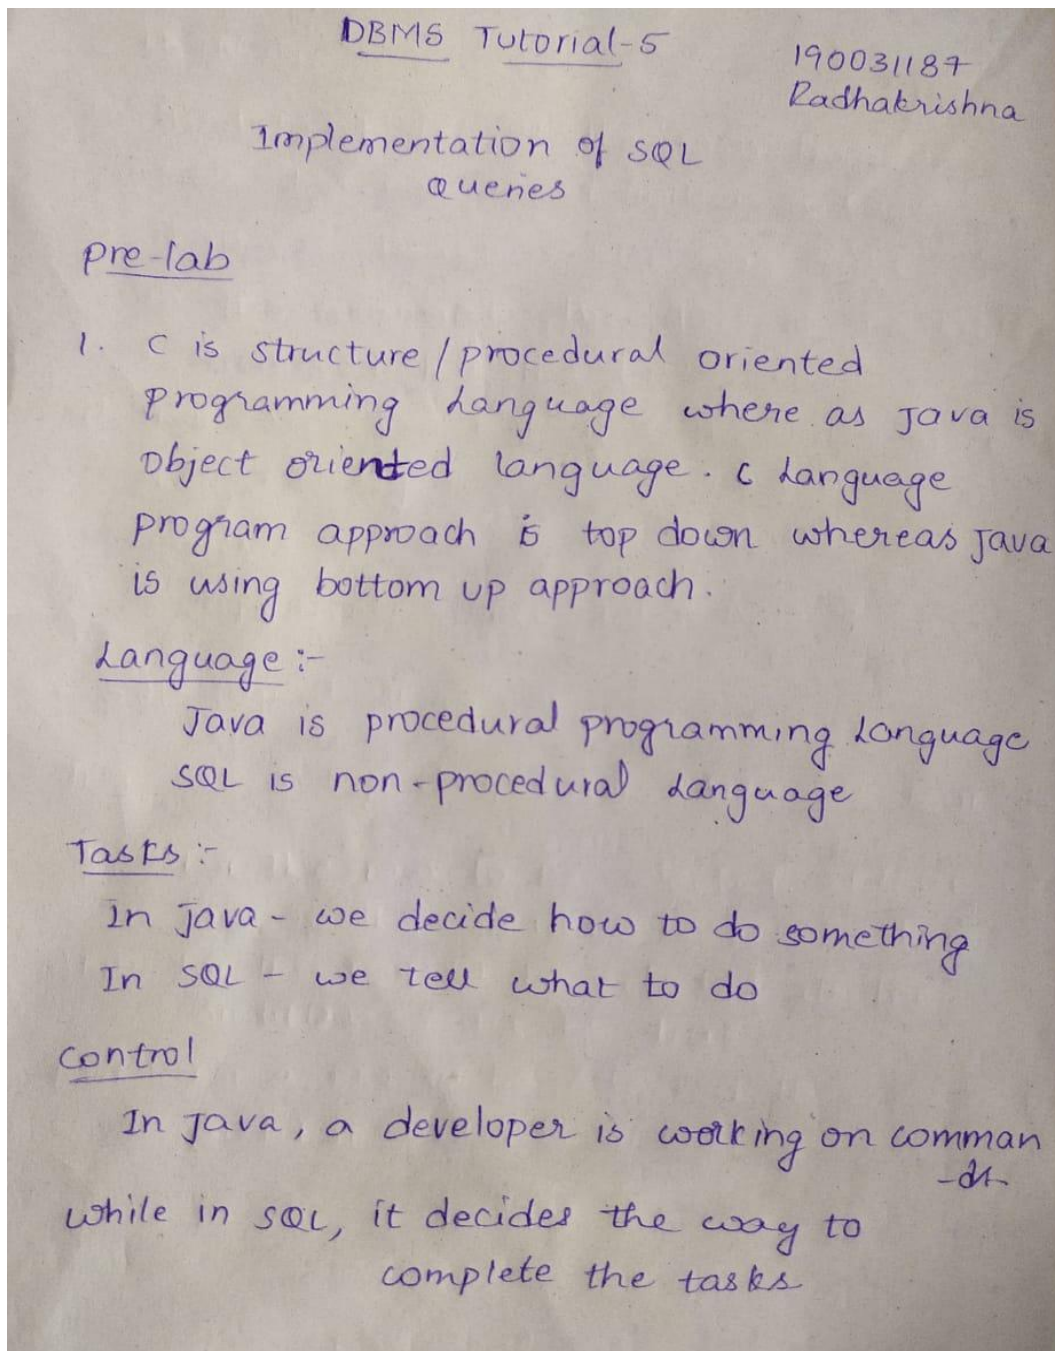 DBMS Tutorial-5
190031187
Radhakrishna
Implementation of SQL
Queries
Pre-lab
1. C is structure/procedural oriented
programming Language where as Java is
Object oriented language. C Language
program approach is top down whereas Java
is using bottom up approach.
Language :-
Java is procedural programming Language
SQL is non-procedural Language
Tasks :-
In Java - we decide how to do something
In SQL - we tell what to do
Control
In Java, a developer is working on comman
-ds
while in SQL, it decides the way to
complete the tasks